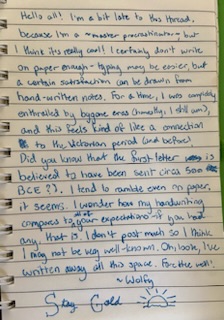 Hello all! I'm a bit late to this thread,
because I'm a ~master procrastinator~ but
I think it's really cool! I certainly don't write
on paper enough - typing may be easier, but
a certain satisfaction can be drawn from
hand-written notes. For a time, I was completely
enthralled by bygone eras (honestly, I still am),
and this feels kind of like a connection
to the Victorian period (and before)
Did you know that the first letter is
believed to have been sent circa 500
BCE?). I tend to ramble even on paper,
it seems. I wonder how my handwriting
compares to all of your expectations if you had
any, that is. I don't post much so I think
I may not be very well-known. Oh look, I've
written away all this space. Farewell!
~Wolfy
Stay Gold